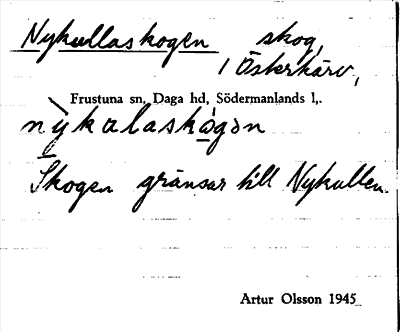 Nykullaskogen skog,
i Österkärv,
Frustuna sn, Daga hd, Södermanlands l,.
nỳkalaskógən
Skogen gränsar till Nykullen.
Artur Olsson 1945